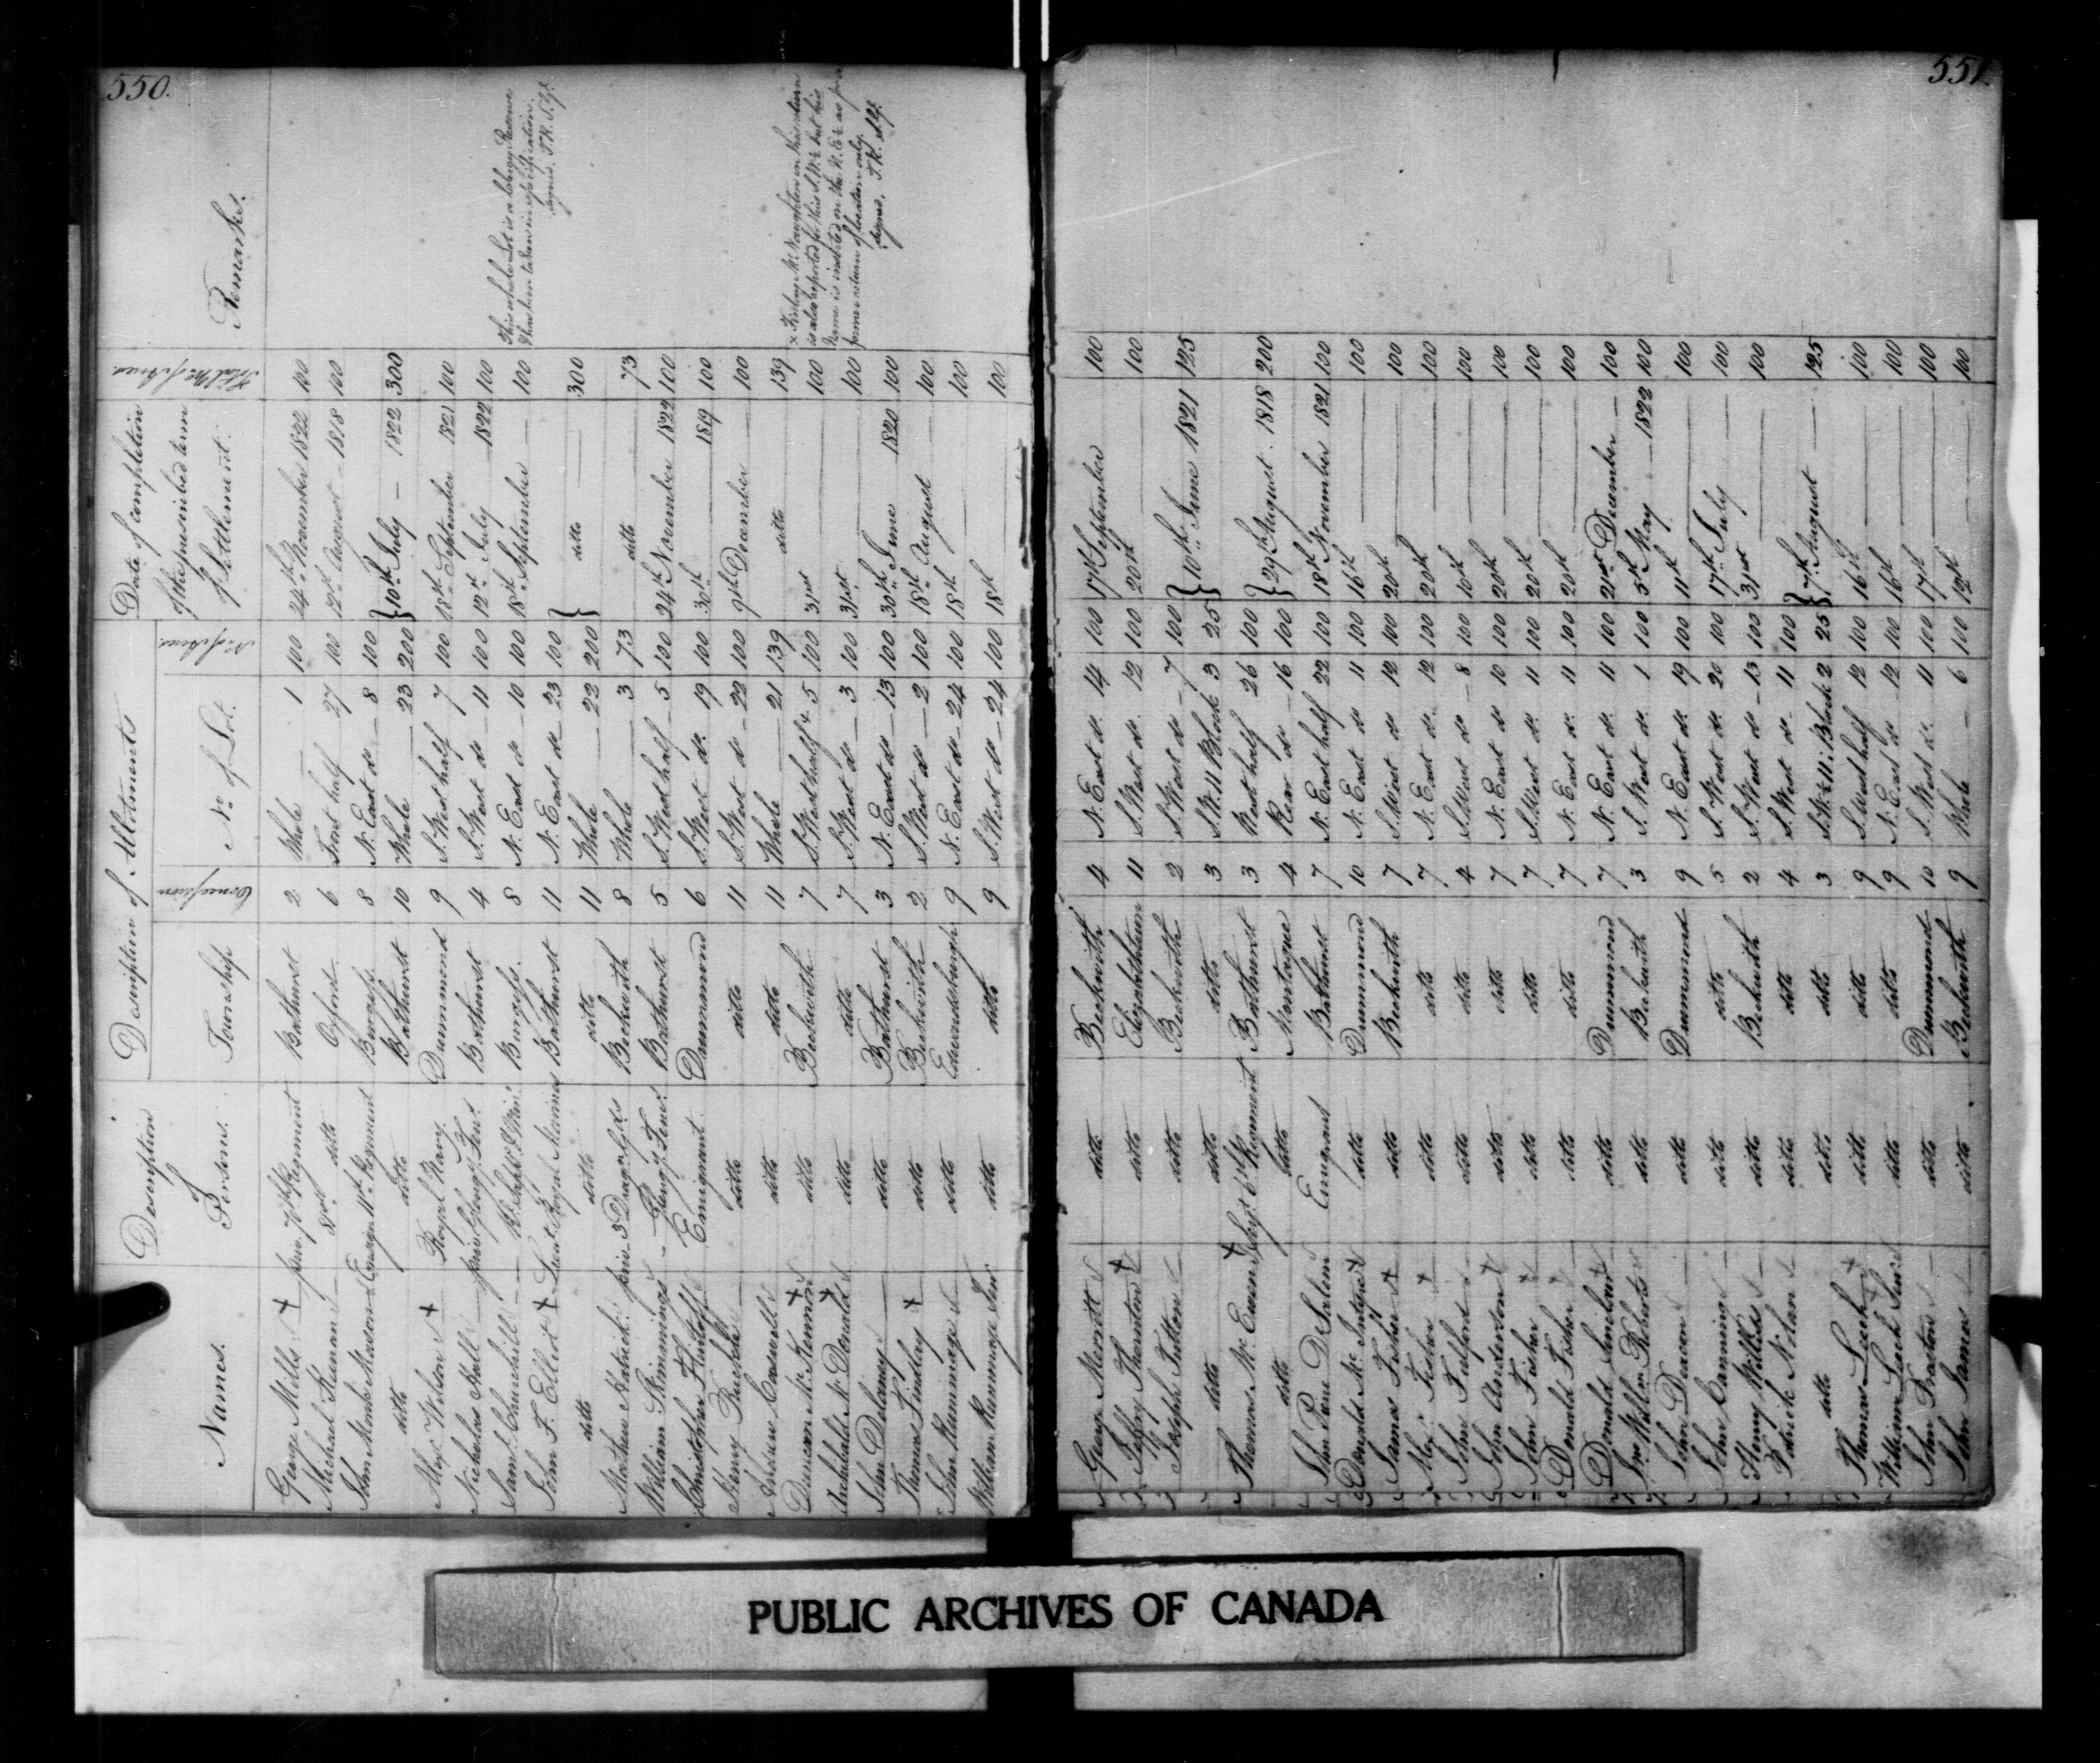 550.
Names. Description of Persons. Description of Allotments Township Concession No. of Lot. No. of Acres Date of completion of the prescribed term of Settlement. Total No. of Acres Remarks.
George Mills + priv. 7th Regiment Bathurst 2 Whole 1 100 24th November 1822 100
Michael Keenan ditto Oxford 6 Front half 27 100 12th August 1818 100
John Monk Mason Ensign Regiment Burgess 8 N. East do 8 100
ditto ditto Bathurst 10 Whole 23 200 } 10th July 1822 300
Alexr. Wilson + Royal Navy Drummond 9 S. West half 7 100 18th September 1821 100
Nicholas Hall priv Glengy. Fens. Bathurst 4 S. West do 11 100 12th July 1822 100
Saml. Churchill Burgess. 8 N. East do 10 100 18th September 100 This whole Lot is a Clergy Reserve & has been taken in misapplication. signed. T.R. S.G.
John F. Elliot + Lieut Royal Marines Bathurst 11 N. East do 23 100
ditto ditto ditto 11 Whole 22 200 } ditto 300
Mathew priv 3 Drag. Gds Beckwith 8 Whole 3 73 ditto 73
William Skimmings Glengy. Fens. Bathurst 5 S. West half 5 100 24th November 1822 100
Christopher Emigrant Drummond 6 S. West do. 19 100 30th 1819 100
Henry ditto ditto 11 S. West do 22 100 9th December 100
Andrew Caswell ditto ditto 11 Whole 21 139 ditto 139
Duncan McKennon + ditto Beckwith 7 S. West half x 5 100 31st 100 x Finlay McNaughton on this return is also reported for this S.W. ½ but his name is inserted on the N.E. ½ as per former return of location only. signed. T.R. S.G.
Archibald McDonald + ditto ditto 7 S. West do 3 100 31st 100
John Delaney ditto Bathurst 3 N. East do 13 100 30th June 1820 100
Thomas Findlay + ditto Beckwith 2 S. West do 2 100 18th August 100
John Rummage ditto Edwardsburgh 9 N. East do 24 100 18th 100
William Rummage Senr. ditto ditto 9 S. West do 24 100 18th 100
551.
George Merritt ditto Beckwith 4 N. East do. 14 100 17th September 100
Jeffry Thornton + ditto Elizabethtown 11 S. West do. 12 100 20th 100
Joseph Sutton ditto Beckwith 2 S. West do 7 100
ditto ditto ditto 3 S.W. 11 Block 3 25 } 10th June 1821 125
Thomas McEwen + Regiment Bathurst 3 West half 26 100
ditto ditto Montague 4 Rear do 16 100 } 29th August 1818 200
John Pore DeSalem Emigrant Bathurst 7 N. East half 22 100 18th November 1821 100
Donald McIntyre + ditto Drummond 10 N. East do 11 100 16th 100
James Fisher + ditto Beckwith 7 S. West do 12 100 20th 100
Alexr. Fisher + ditto ditto 7 N. East do. 12 100 20th 100
John Fulford ditto ditto 4 S. West do 8 100 10th 100
John Anderson + ditto ditto 7 N. East do 10 100 20th 100
John Fisher + ditto ditto 7 S. West do 11 100 20th 100
Donald Fisher + ditto ditto 7 N. East do 11 100 20th 100
Donald Sinclair + ditto Drummond 7 N. East do 11 100 21st December 100
Jno. Willm. Roberts ditto Beckwith 3 S. West do 1 100 5th May 1822 100
John Deacon ditto Drummond 9 N. East do 19 100 11th 100
John Canning ditto ditto 5 S. West do 20 100 17th July 100
Henry Wilkes ditto Beckwith 2 S. West do 13 100 31st 100
Patrick Nolan ditto ditto 4 S. West do 11 100
ditto ditto ditto 3 S.W. ½ 11: Block 2 25 } 7th August 125
Thomas Leech + ditto ditto 9 S. West half 12 100 16th 100
William Leech Senr. ditto ditto 9 N. East do 12 100 16th 100
John Braton ditto Drummond 10 S. West do. 11 100 17th 100
John James ditto Beckwith 9 Whole 6 100 19th 100
PUBLIC ARCHIVES OF CANADA